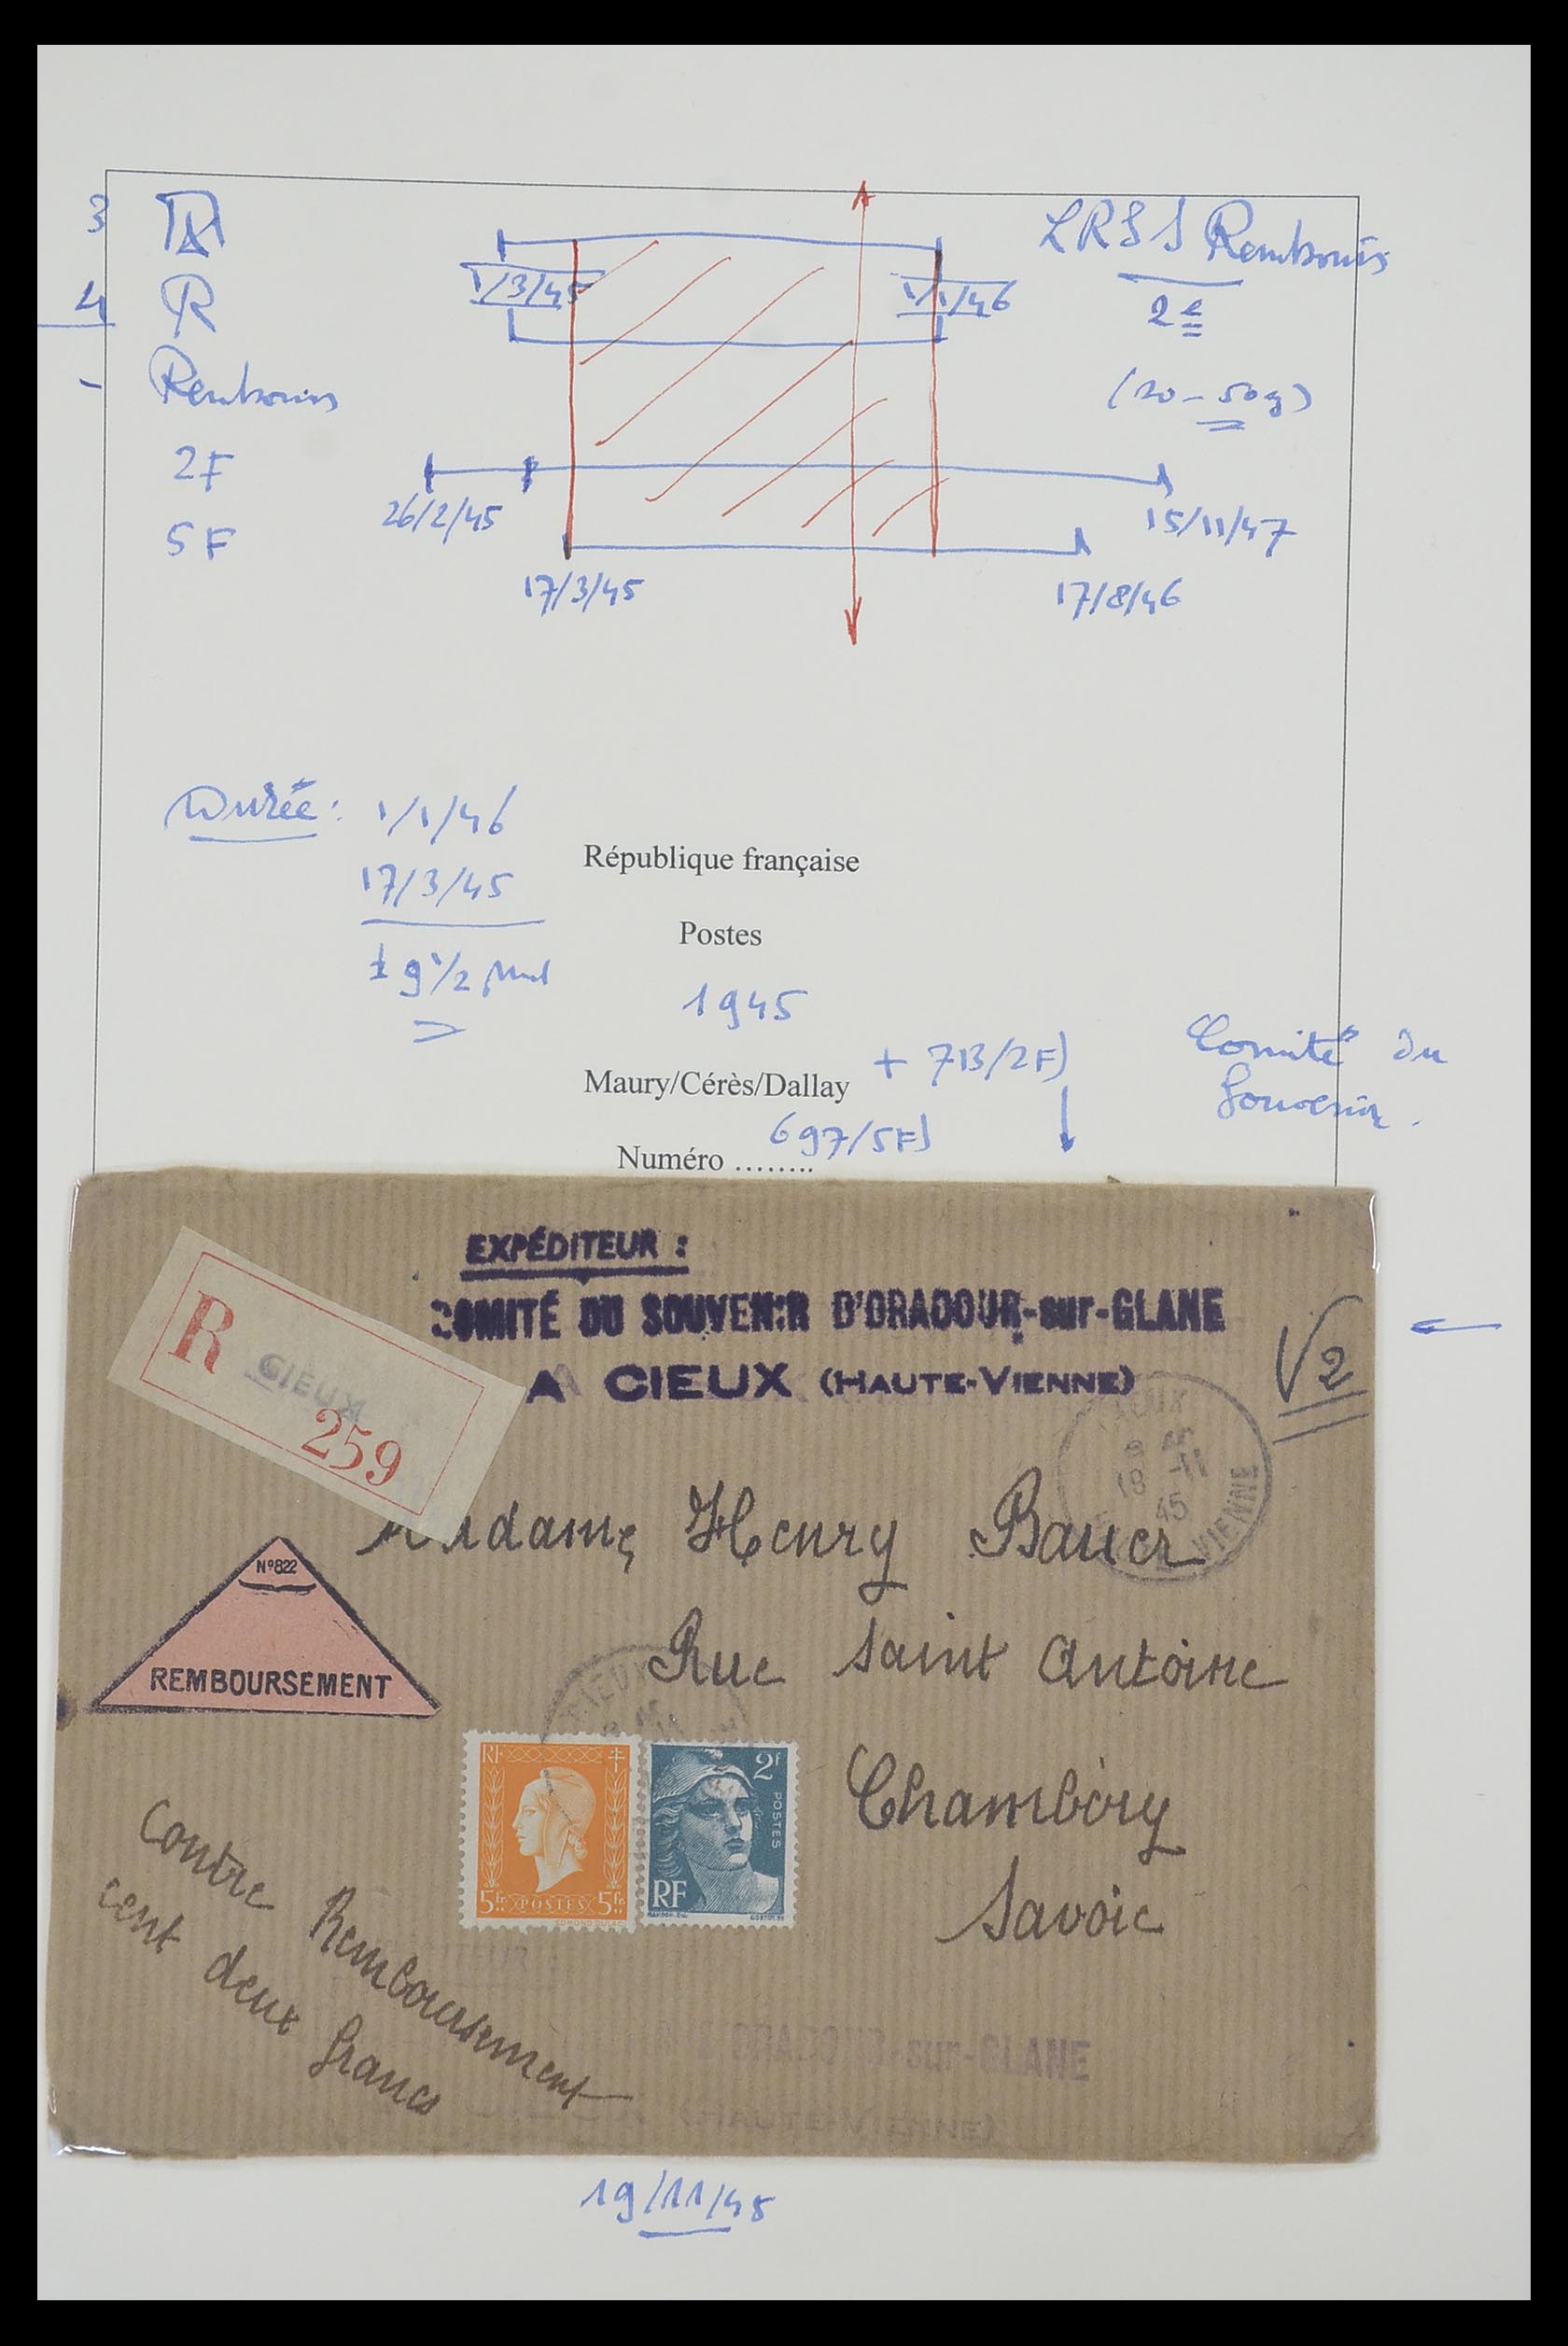 3
LRSS Rembours
1/3/45
1/1/46
4 R
2e
- Rembours
(20-50g)
2F
26/2/45
15/11/47
5F
17/3/45
17/8/46
Durée: 1/1/46
République française
17/3/45
Postes
± 9 1/2
1945
+ 713/2F)
Comité du
Maury/Cérès/Dallay
Souvenir.
697/5F)
Numéro ........
EXPÉDITEUR :
COMITÉ DU SOUVENIR D'ORADOUR-sur-GLANE
A CIEUX (HAUTE-VIENNE)
R CIEUX
259
V2
CIEUX
18 -11
45
VIENNE
Madame Henry Bauer
N°822
REMBOURSEMENT
Rue Saint Antoine
CIEUX
RF
2F
POSTES
5fr POSTES 5fr
EDMOND DULAC
RF
Chambéry
Savoie
Contre Remboursement
cent deux francs
ORADOUR-sur-GLANE
(HAUTE-VIENNE)
19/11/45